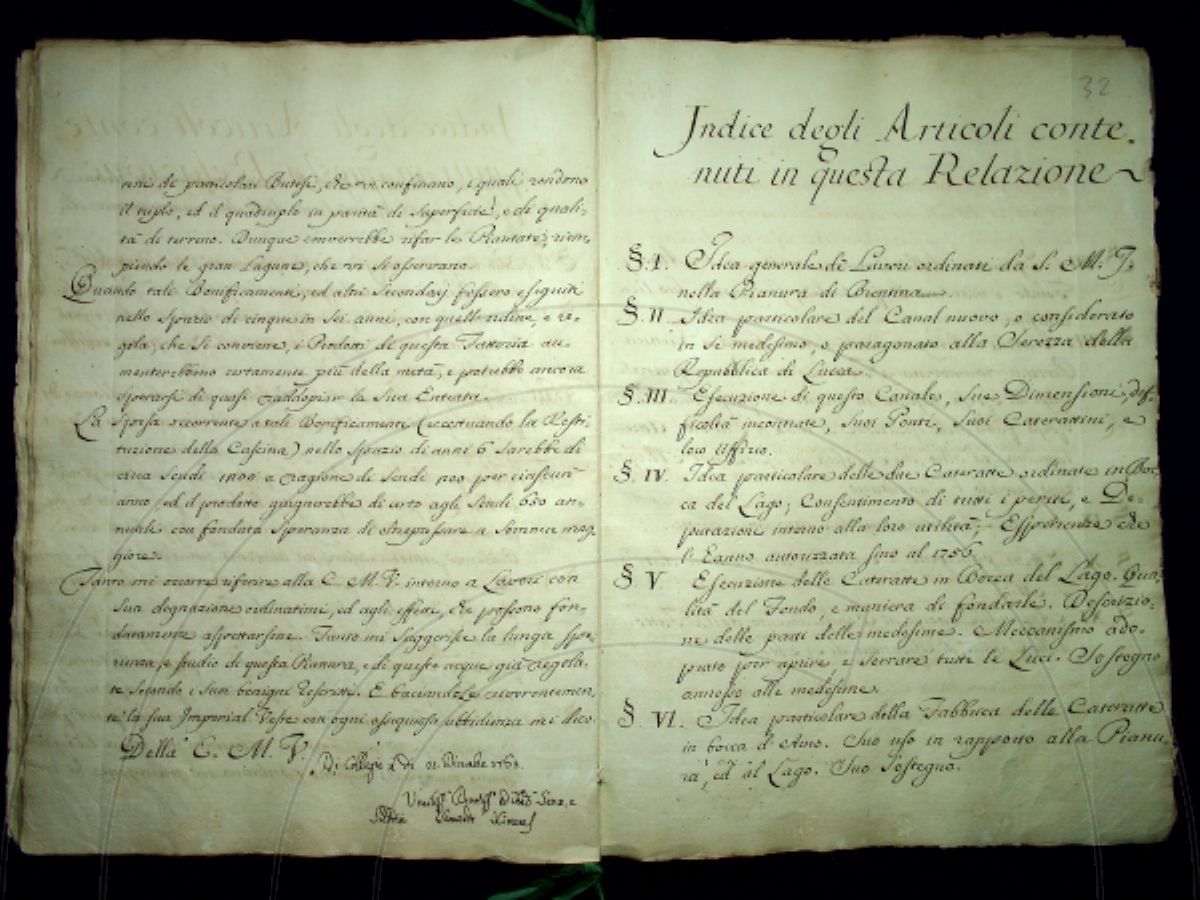 rini de particolari Butesi, che vi confinano, i quali rendono
il triplo, ed il quadruplo in parità di Superficie, e di quali-
tà di terreno. Dunque converrebbe rifar le Piantate, riem-
piendo le gran Lagune, che vi si osservano.
Quando tali Bonificamenti, ed altri Secondarj fossero eseguiti
nello Spazio di cinque in Sei anni, con quell'ordine, e re-
gola, che Si conviene, i Prodotti di questa Fattoria au-
menterebbono certamente più della metà, e potrebbe ancora
sperarsi di quasi raddopiar la Sua Entrata.
La Spesa occorrente a tali Bonificamenti (eccettuando la Resti-
tuzione della Cascina) nello Spazio di anni 6 Sarebbe di
circa Scudi a ragione di Scudi per ciascun
anno, ed il prodotto giugnerebbe di certo agli Scudi 650 an-
nuale con fondata Speranza di oltrepassare a Somma mag-
giore.
Tanto mi occorre riferire alla C. M. V. intorno a Lavori con
Sua degnazione ordinatimi, ed agli effetti, che possono fon-
datamente aspettarsine. Tanto mi Suggerisce la lunga Spe-
rienza, e studio di questa Pianura, e di queste acque già regola-
te Secondo i Suoi benigni Rescritti. E baciandole reverentemen-
te la sua Imperial Veste con ogni ossequiosa ubbidienza mi dico
Della C. M. V.
Di Collegio
32
Indice degli Articoli conte-
nuti in questa Relazione
§. I. Idea generale de Lavori ordinati da S. M. I.
nella Pianura di Bientina.
§. II. Idea particolare del Canal nuovo, o considerato
in Se medesimo, o paragonato alla Serezza della
Repubblica di Lucca.
§. III. Esecuzione di questo Canale, Sue Dimensioni, dif-
ficoltà incontrate, Suoi Ponti, Suoi Caterattini, e
loro Uffizio.
§. IV. Idea particolare delle due Cateratte ordinate in Boc-
ca del Lago; Consentimento di tutti i periti, e De-
putazioni intorno alla loro utilità; Esperienze che
l'hanno autorizzata sino al 1756.
§ V Esecuzione delle Cateratte in Bocca del Lago. Qua-
lità del Fondo, e maniera di fondarle. Descrizio-
ne delle parti delle medesime. Meccanismo ado-
prato per aprire e serrare tutte le Luci. Sostegno
annesso alle medesime.
§. VI. Idea particolare della Fabbrica delle Cateratte
in bocca d'Arno. Suo uso in rapporto alla Pianu-
ra, ed al Lago. Suo Sostegno.